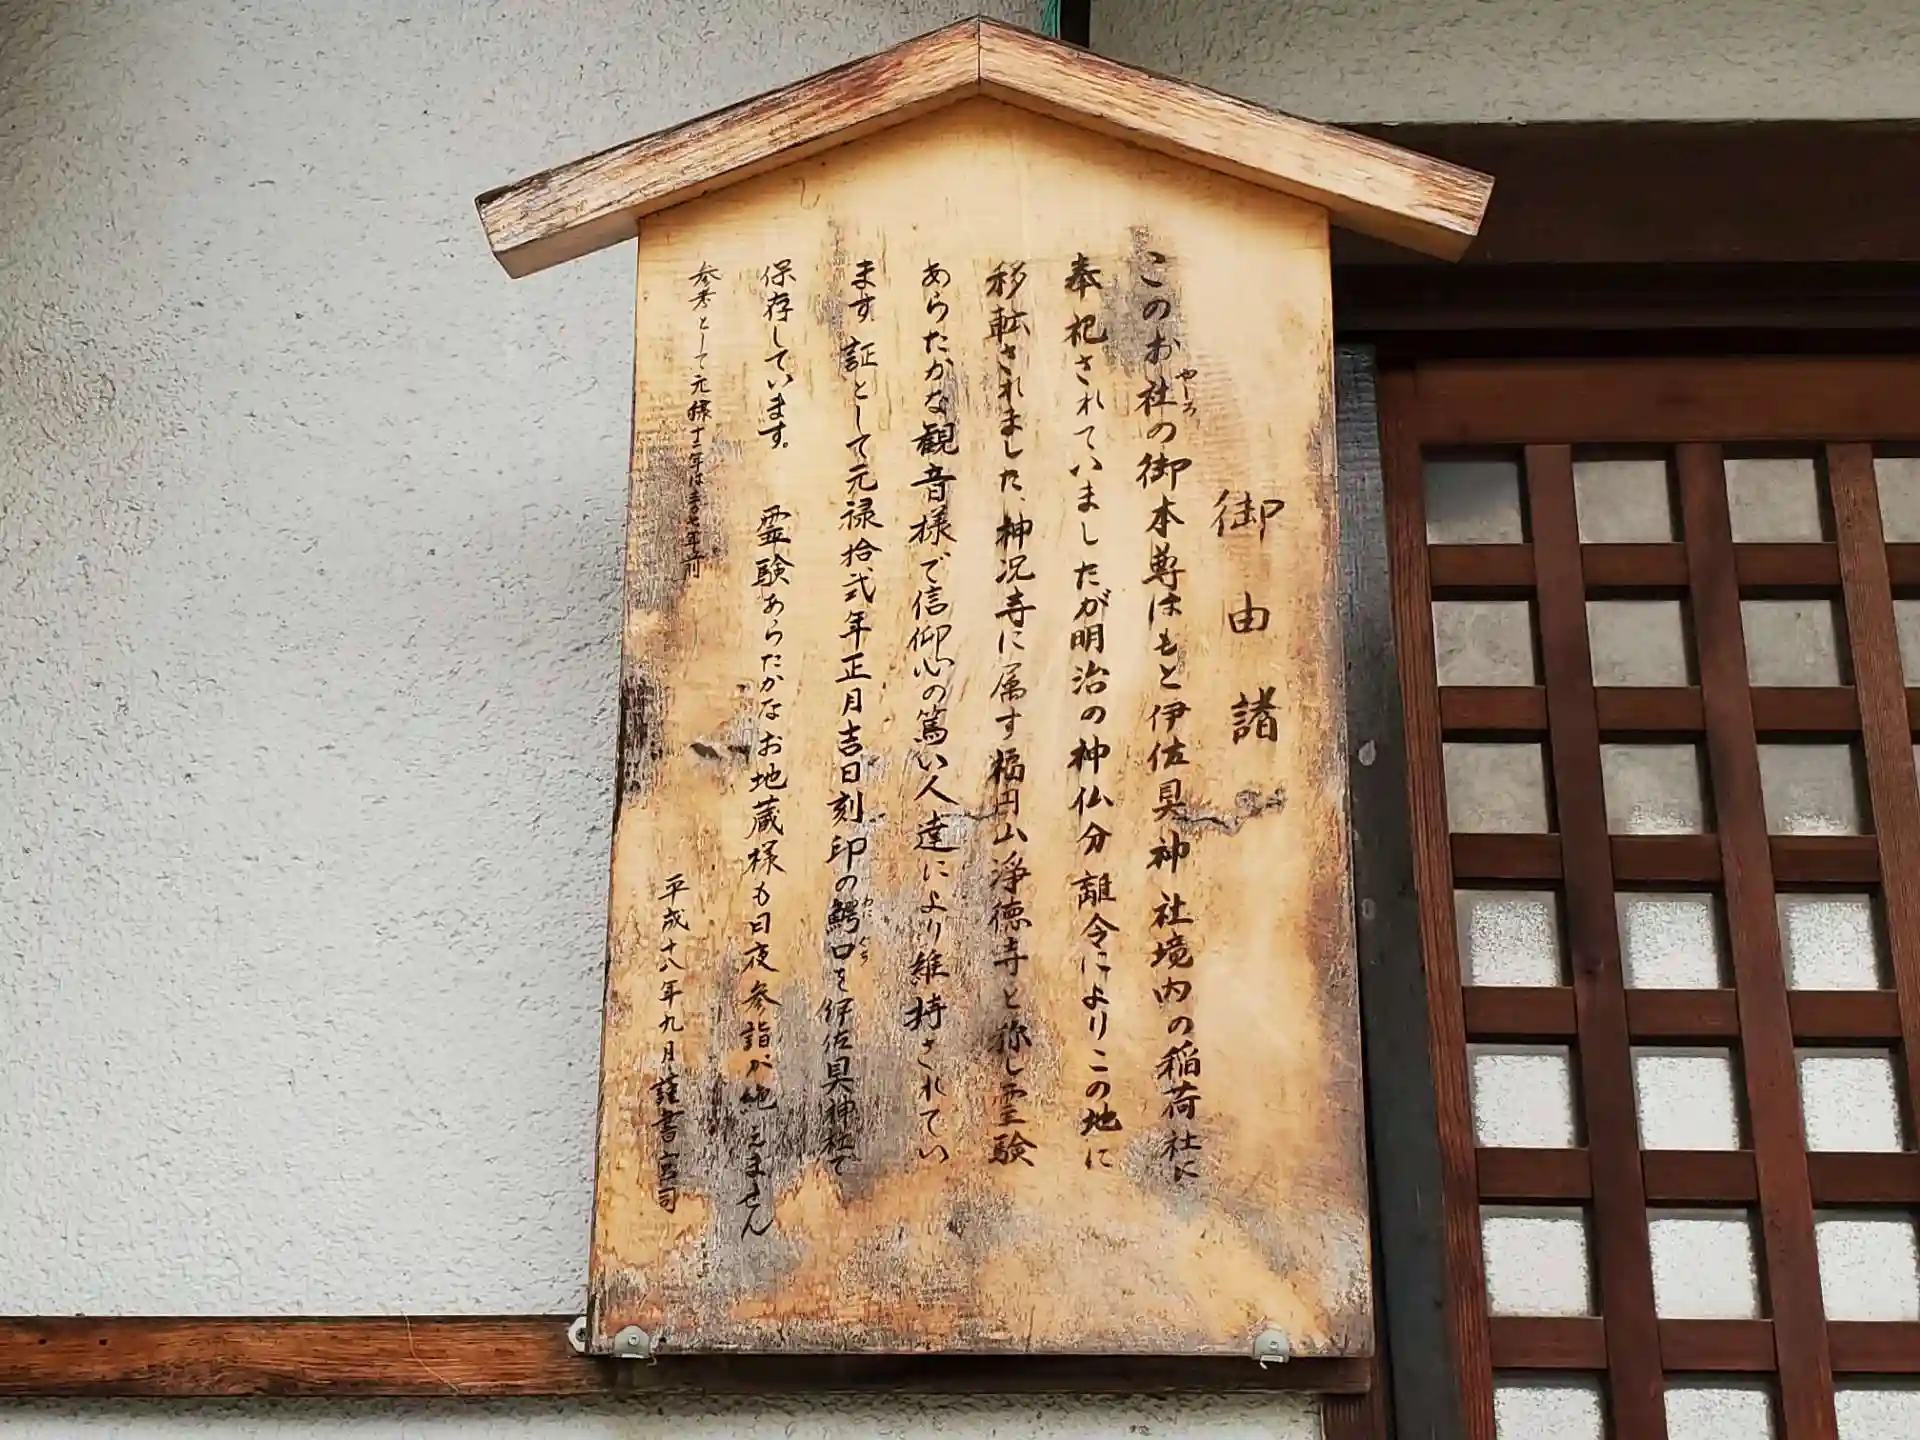 御由諸
このお社の御本尊はもと伊佐具神社境内の稲荷社に
やしろ
奉祀されていましたが明治の神仏分離令によりこの地に
移転されました、神呪寺に属す福円山淨徳寺と称し霊験
あらたかな観音様で信仰心の篤い人達により維持されてい
ます。証として元禄拾弐年正月吉日刻印の鰐口を伊佐具神社で
わにぐち
保存しています。 霊験あらたかなお地蔵様も日夜参詣が絶えません
参考として元禄十二年は三〇七年前
平成十八年九月 謹書 宮司